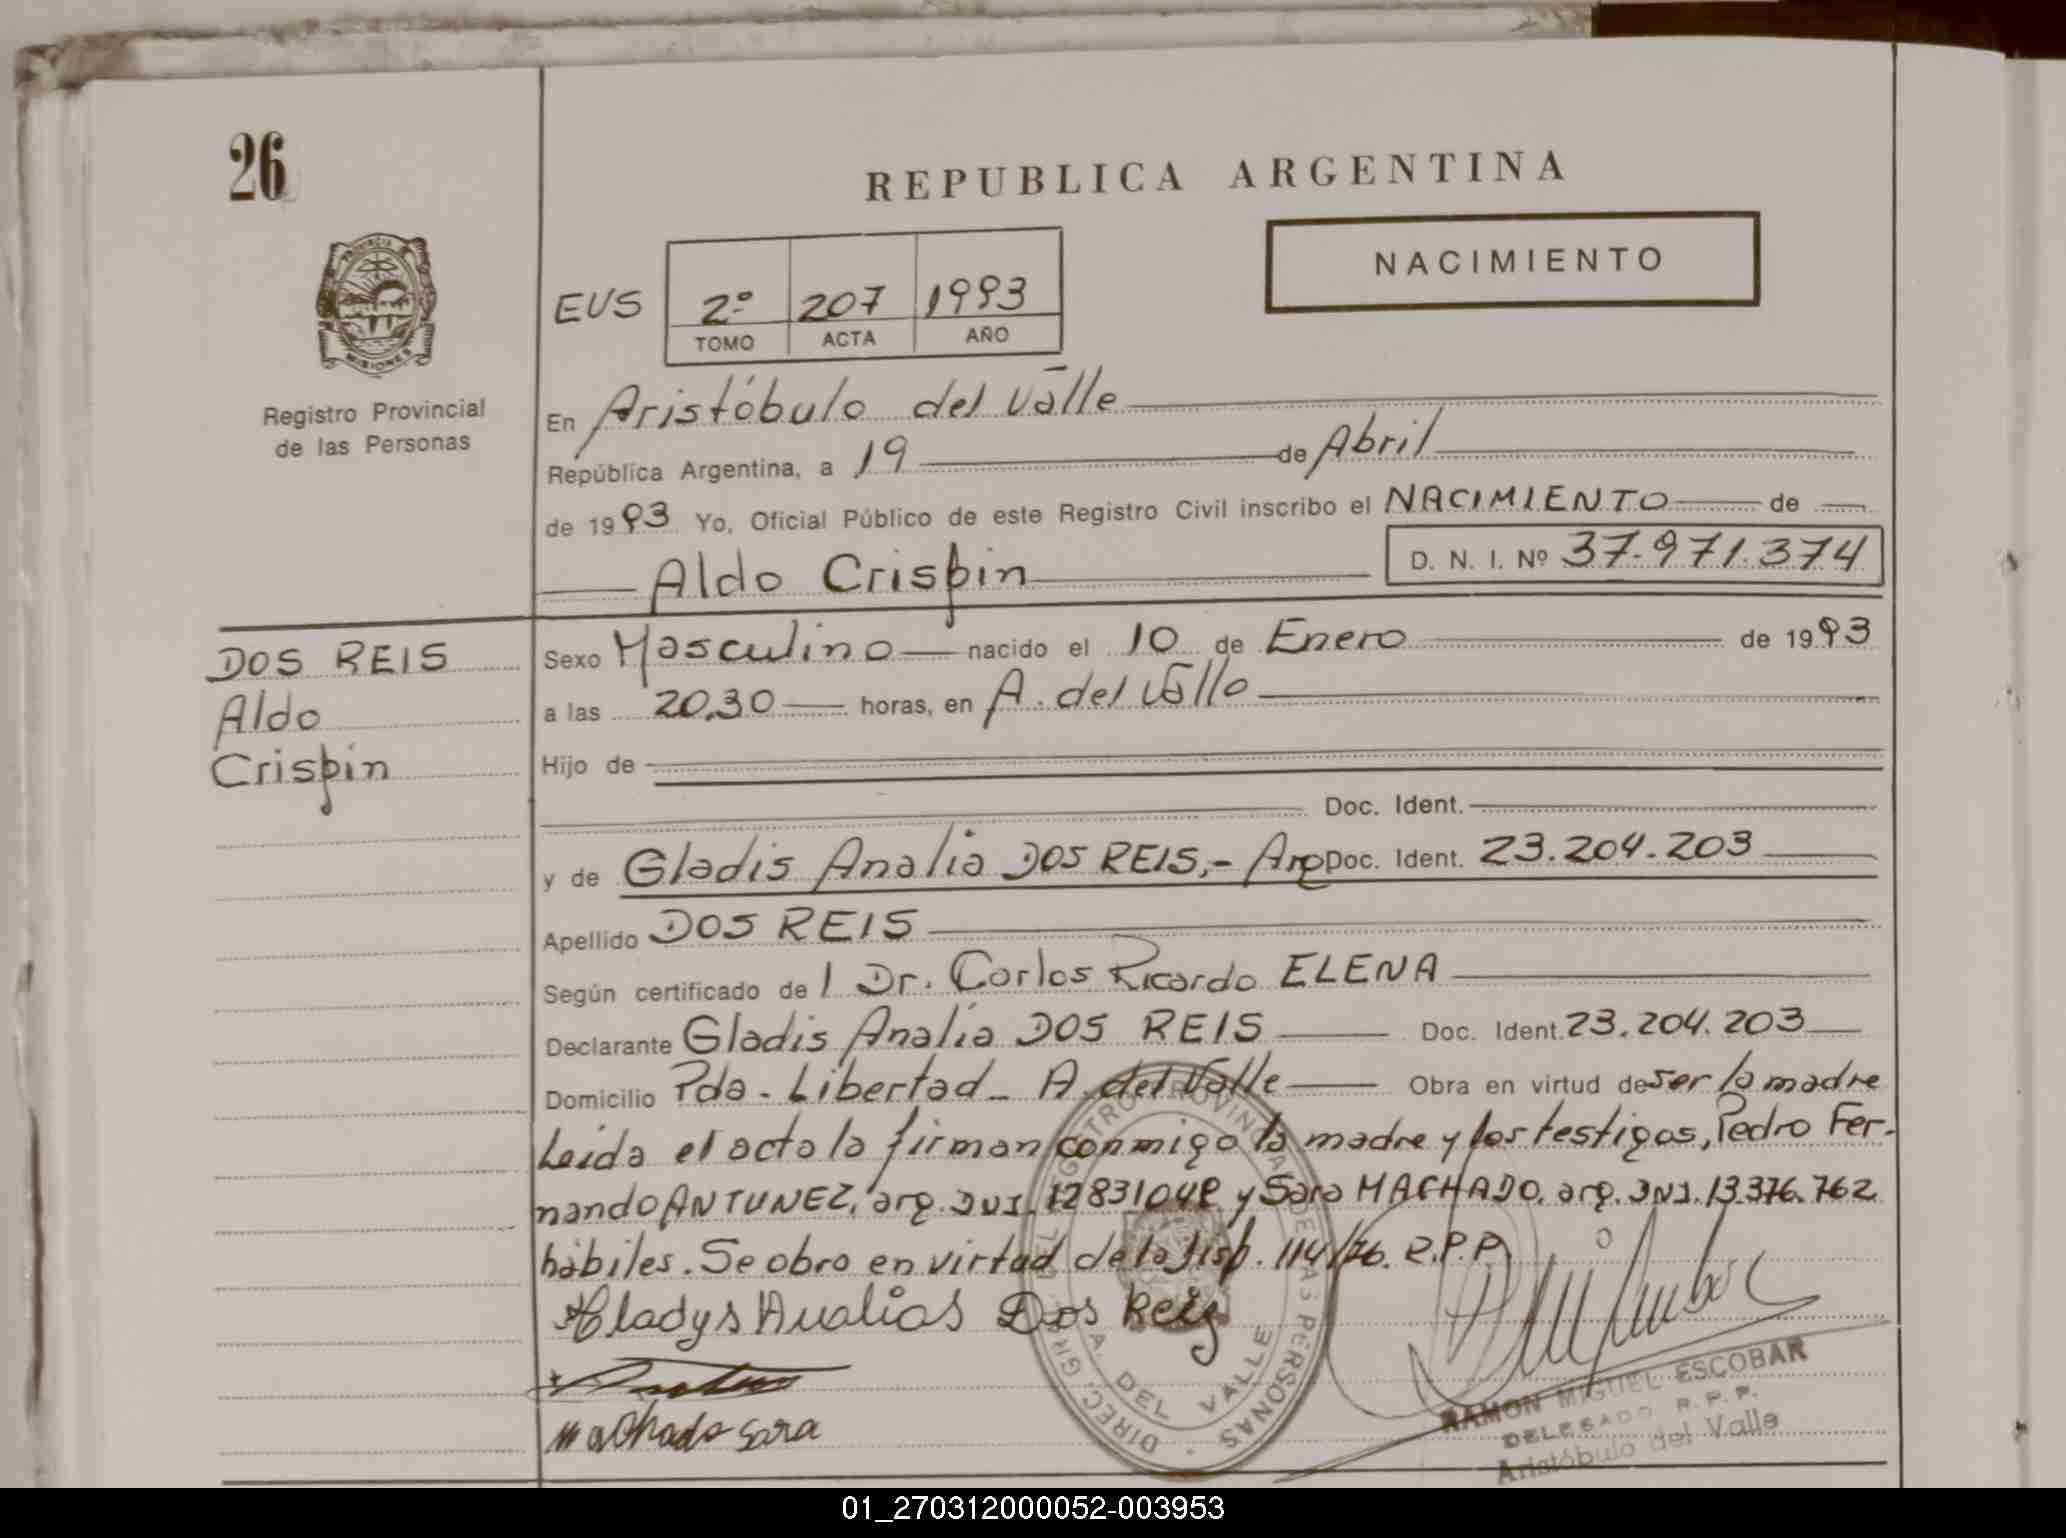 26
REPUBLICA ARGENTINA
NACIMIENTO
PROVINCIA
MISIONES
Registro Provincial
de las Personas
EUS 2º 207 1993
TOMO ACTA AÑO
En Aristóbulo del Valle
República Argentina, a 19 de Abril
de 1993 Yo, Oficial Público de este Registro Civil inscribo el NACIMIENTO de
Aldo Crispin
D. N. I. Nº 37.971.374
DOS REIS
Aldo
Crispin
Sexo Masculino nacido el 10 de Enero de 1993
a las 20,30 horas, en A. del Valle
Hijo de
Doc. Ident.
y de Gladis Analia DOS REIS,- Arg Doc. Ident. 23.204.203
Apellido DOS REIS
Según certificado de l Dr. Carlos Ricardo ELENA
Declarante Gladis Analía DOS REIS Doc. Ident. 23.204.203
Domicilio Pda. Libertad - A. del Valle Obra en virtud de ser la madre
Leida el acta la firman conmigo la madre y los testigos, Pedro Fer-
nando ANTUNEZ, arg. DNI. y Sara MACHADO, arg. DNI. 13.376.762
hábiles. Se obro en virtud de la Disp. 114/76. R.P.P.
Gladys Analias Dos Reis
Machado Sara
DIREC. GRAL. DEL REGISTRO PROVINCIAL DE LAS PERSONAS
A. DEL VALLE
RAMON MIGUEL ESCOBAR
DELEGADO R.P.P.
Aristóbulo del Valle
01_270312000052-003953